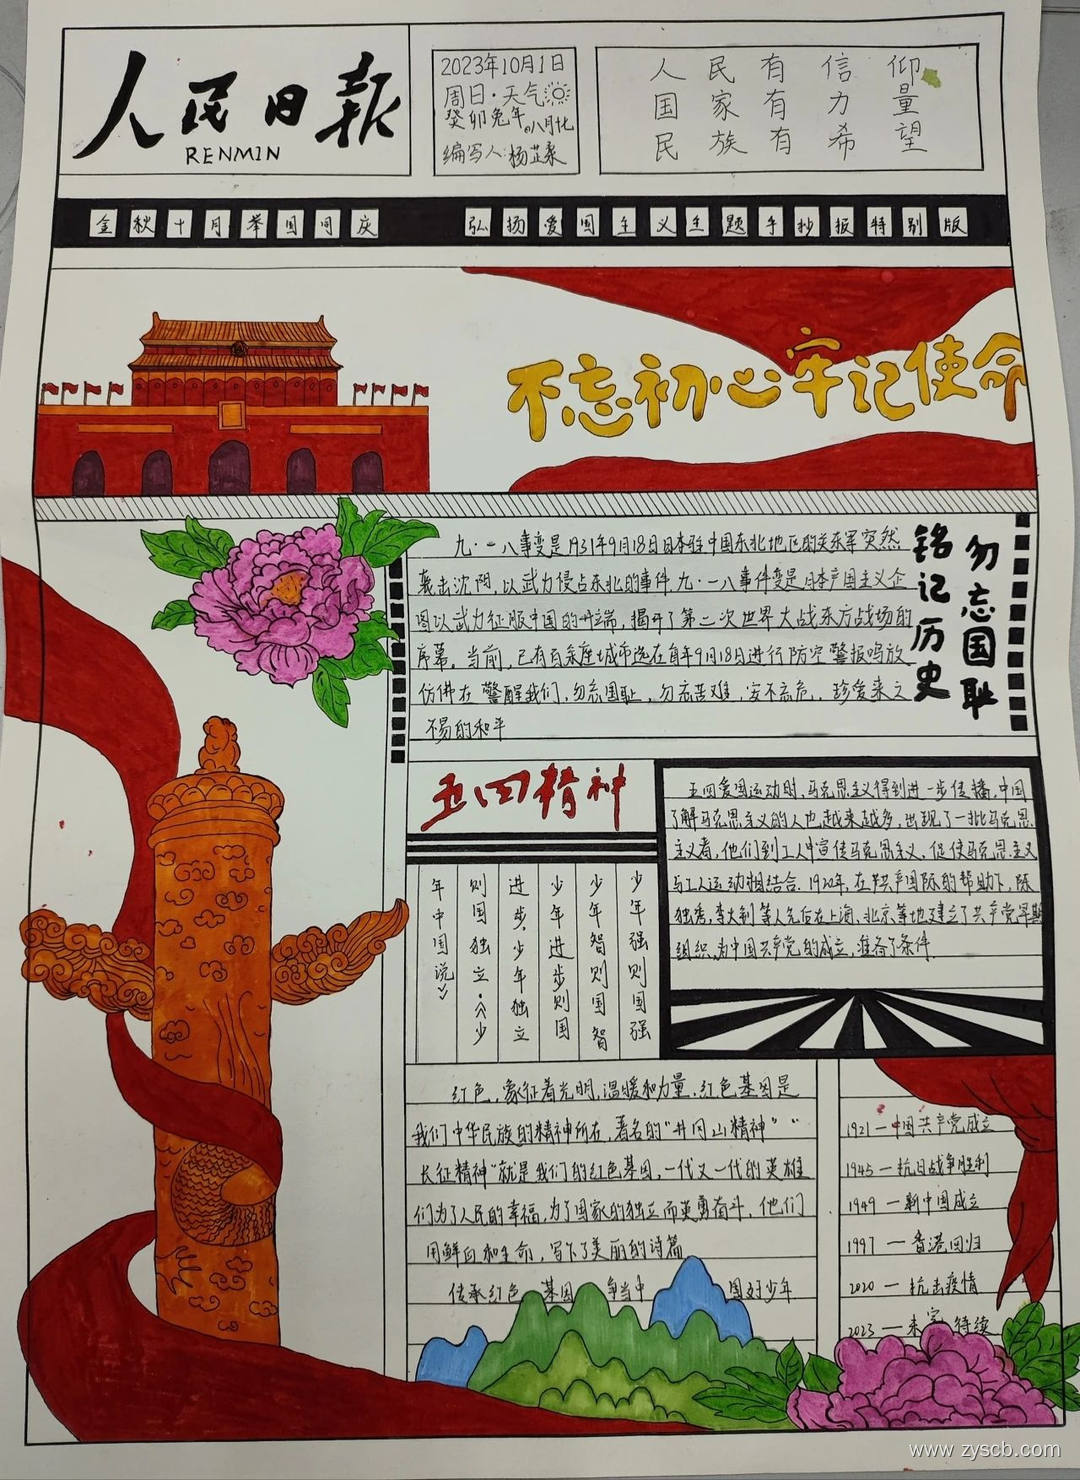 人民日报
RENMIN
2023年10月1日
周日·天气
癸卯兔年。八月十七
编写人:杨芷
人民有信仰
国家有力量
民族有希望
金秋十月举国同庆
弘扬爱国主义主题手抄报特别版
不忘初心牢记使命
九·一八事变是1931年9月18日日本驻中国东北地区的关东军突然
袭击沈阳,以武力侵占东北的事件.九·一八事件变是日本产国主义企
图以武力征服中国的开端,揭开了第二次世界大战东方战场的
序幕。当前,已有百余座城市选在每年9月18日进行防空警报鸣放
仿佛在警醒我们,勿忘国耻,勿忘苦难,安不忘危,珍爱来之
不易的和平
勿忘国耻
铭记历史
五四精神
少年强则国强
少年智则国智
少年进步则国
进步,少年独立
则国独立.《少
年中国说》
五四爱国运动时,马克思主义得到进一步传播,中国
了解马克思主义的人也越来越多,出现了一批马克思
主义者,他们到工人中宣传马克思主义,促使马克思主义
与工人运动相结合.1920年,在共产国际的帮助下,陈
独秀,李大钊等人先后在上海、北京等地建立了共产党早期
组织,为中国共产党的成立,准备了条件
红色,象征着光明,温暖和力量.红色基因是
我们中华民族的精神所在,著名的"井冈山精神"
长征精神"就是我们的红色基因,一代又一代的英雄
们为了人民的幸福,为了国家的独立而英勇奋斗,他们
用鲜血和生命,写下了美丽的诗篇
传承红色基因 争当中国好少年
1921—中国共产党成立
1945—抗日战争胜利
1949—新中国成立
1997—香港回归
2020—抗击疫情
2023—未完待续
www.zyscb.com